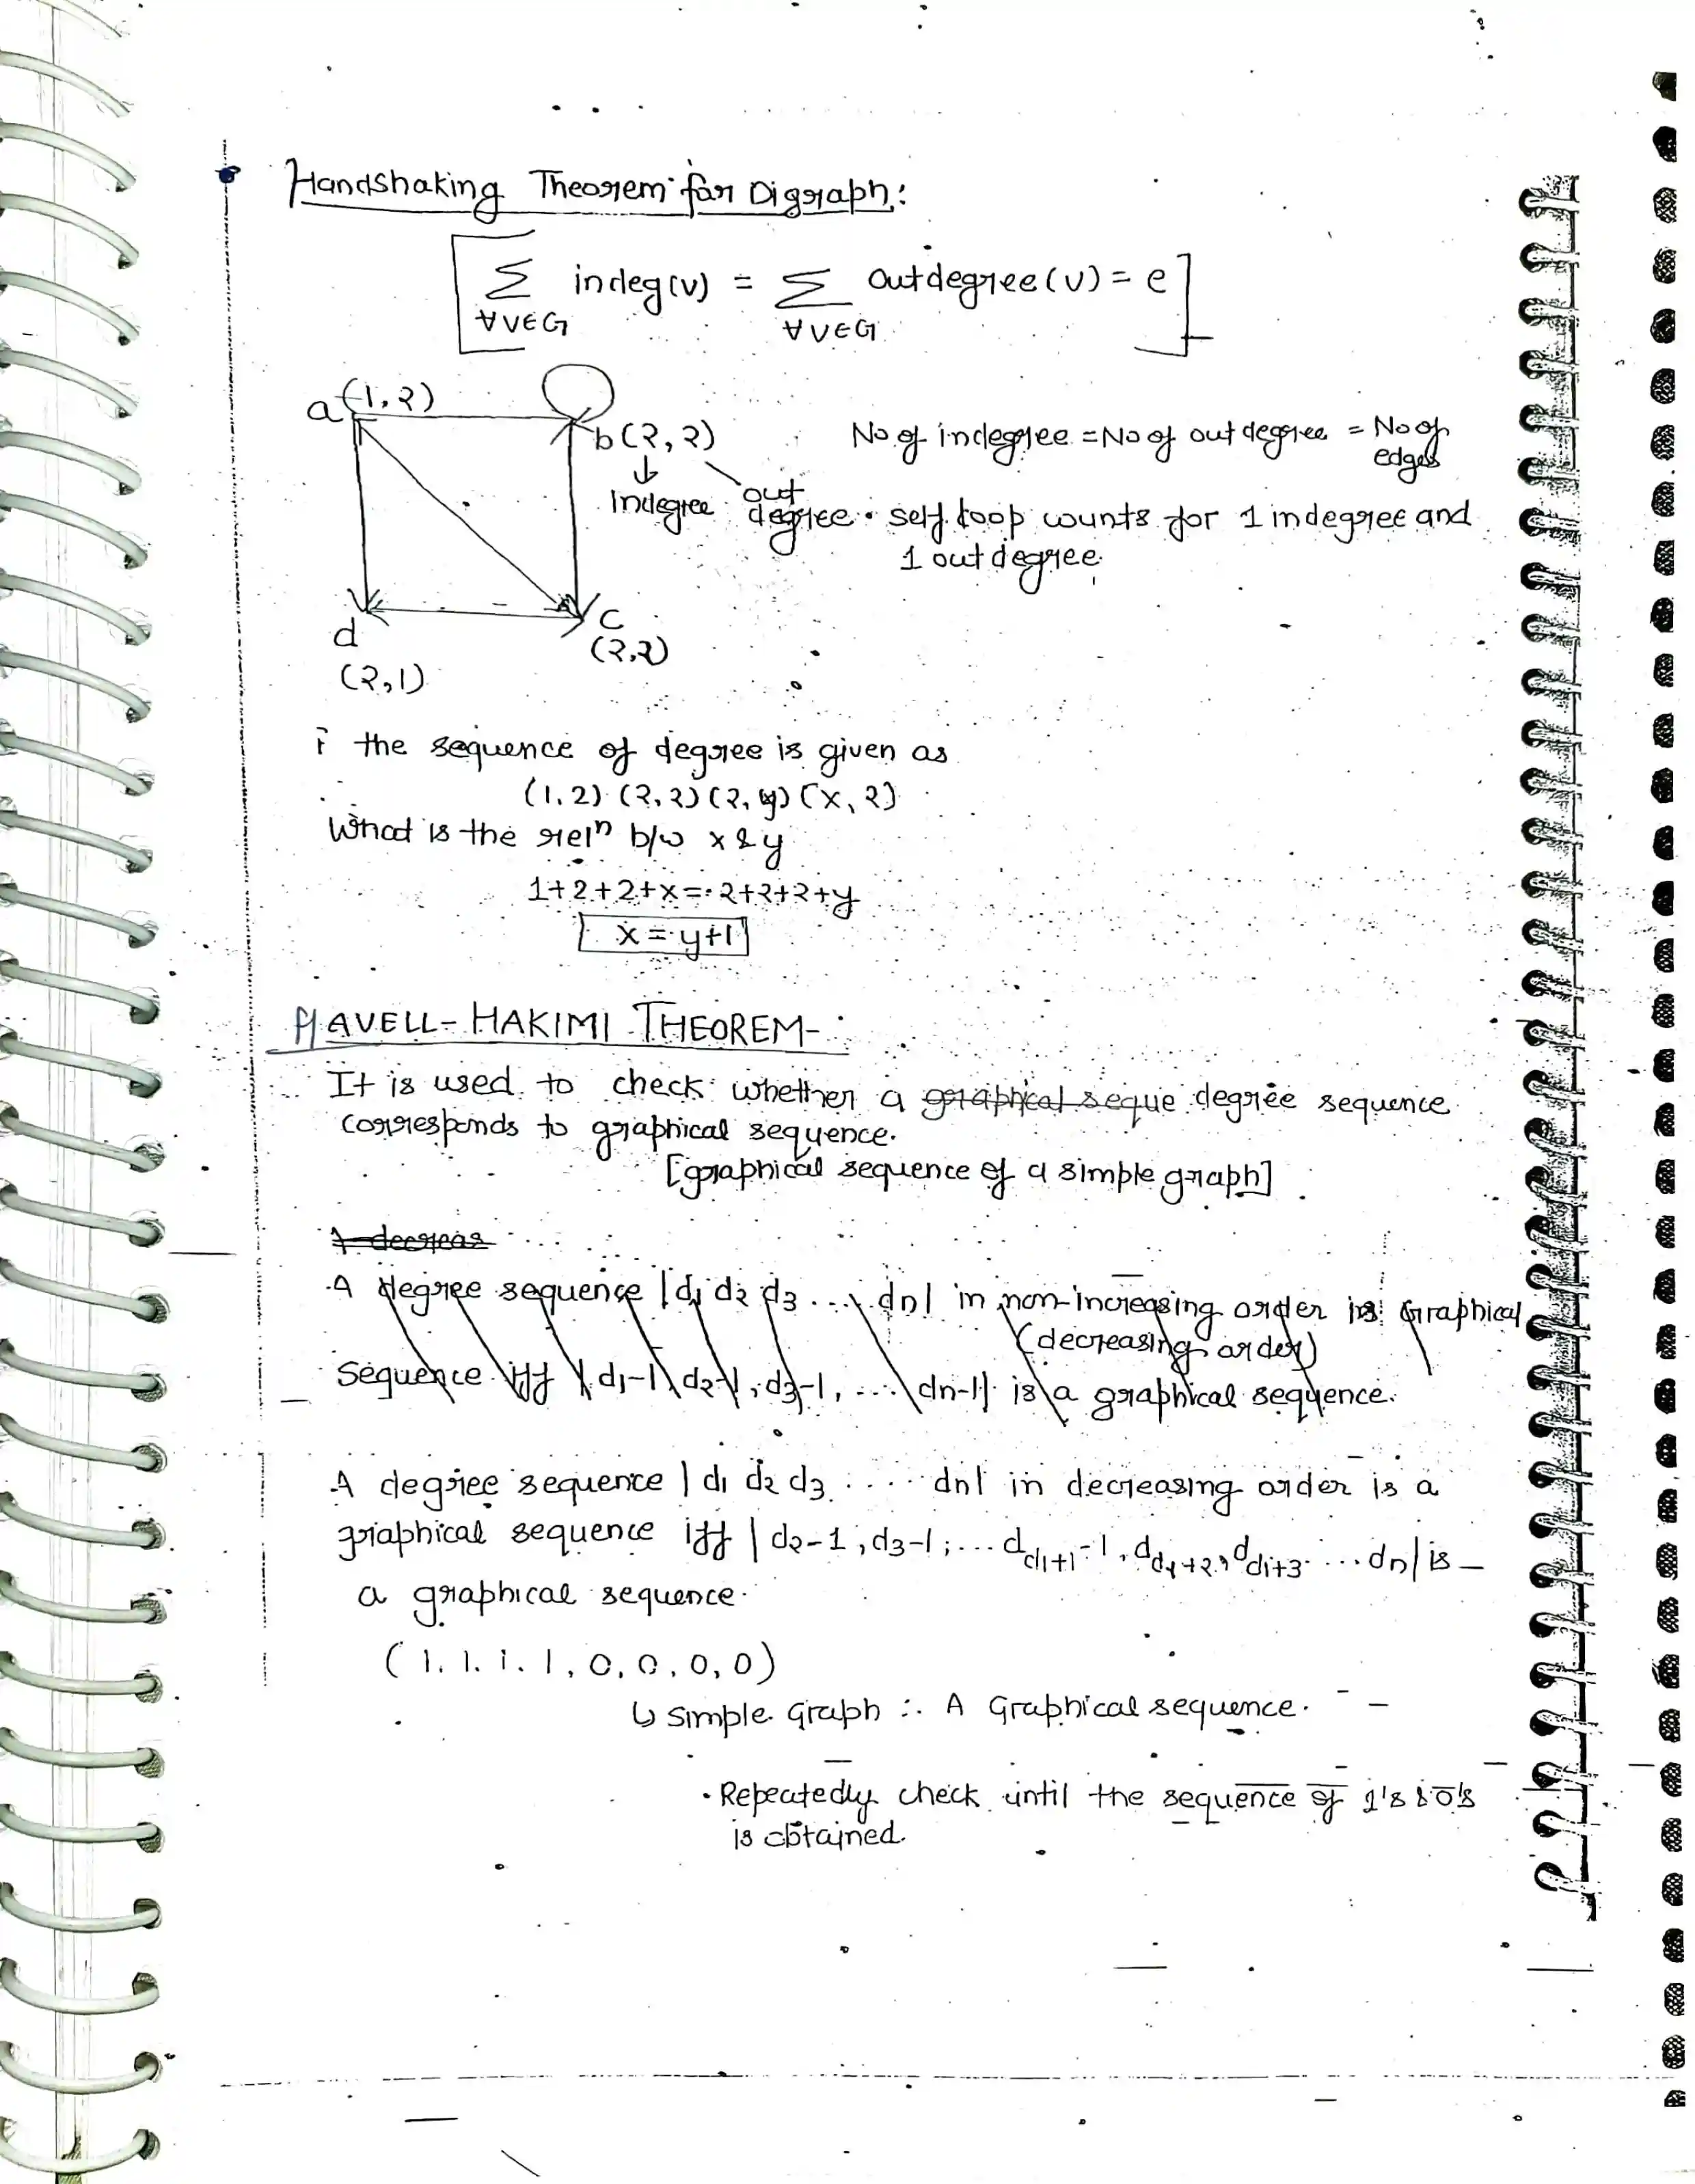 Handshaking Theorem for Digraph:
[ Σ indeg(v) = Σ outdegree(v) = e ]
∀V∈G ∀V∈G
a (1,2)
b (2,2)
Indegree out degree
No of indegree = No of out degree = No of edges
• self loop counts for 1 indegree and
1 out degree
d
(2,1)
c
(2,2)
the sequence of degree is given as
(1,2) (2,2) (2,y) (x,2)
What is the relⁿ b/w x & y
1+2+2+x = 2+2+2+y
x = y+1
HAVELL-HAKIMI THEOREM-
It is used to check whether a graphical seque degree sequence
corresponds to graphical sequence.
[graphical sequence of a simple graph]
A decreas
A degree sequence |d1 d2 d3 .... dn| in non-increasing order is Graphical
(decreasing order)
Sequence iff | d1-1, d2-1, d3-1, .... dn-1| is a graphical sequence.
A degree sequence | d1 d2 d3 ..... dn| in decreasing order is a
graphical sequence iff | d2-1, d3-1, ... d_{d1+1}-1, d_{d1+2}, d_{d1+3} .... dn| is
a graphical sequence.
(1, 1, 1, 1, 0, 0, 0, 0)
↳ simple graph ∴ A Graphical sequence.
• Repeatedly check until the sequence of 1's & 0's
is obtained.